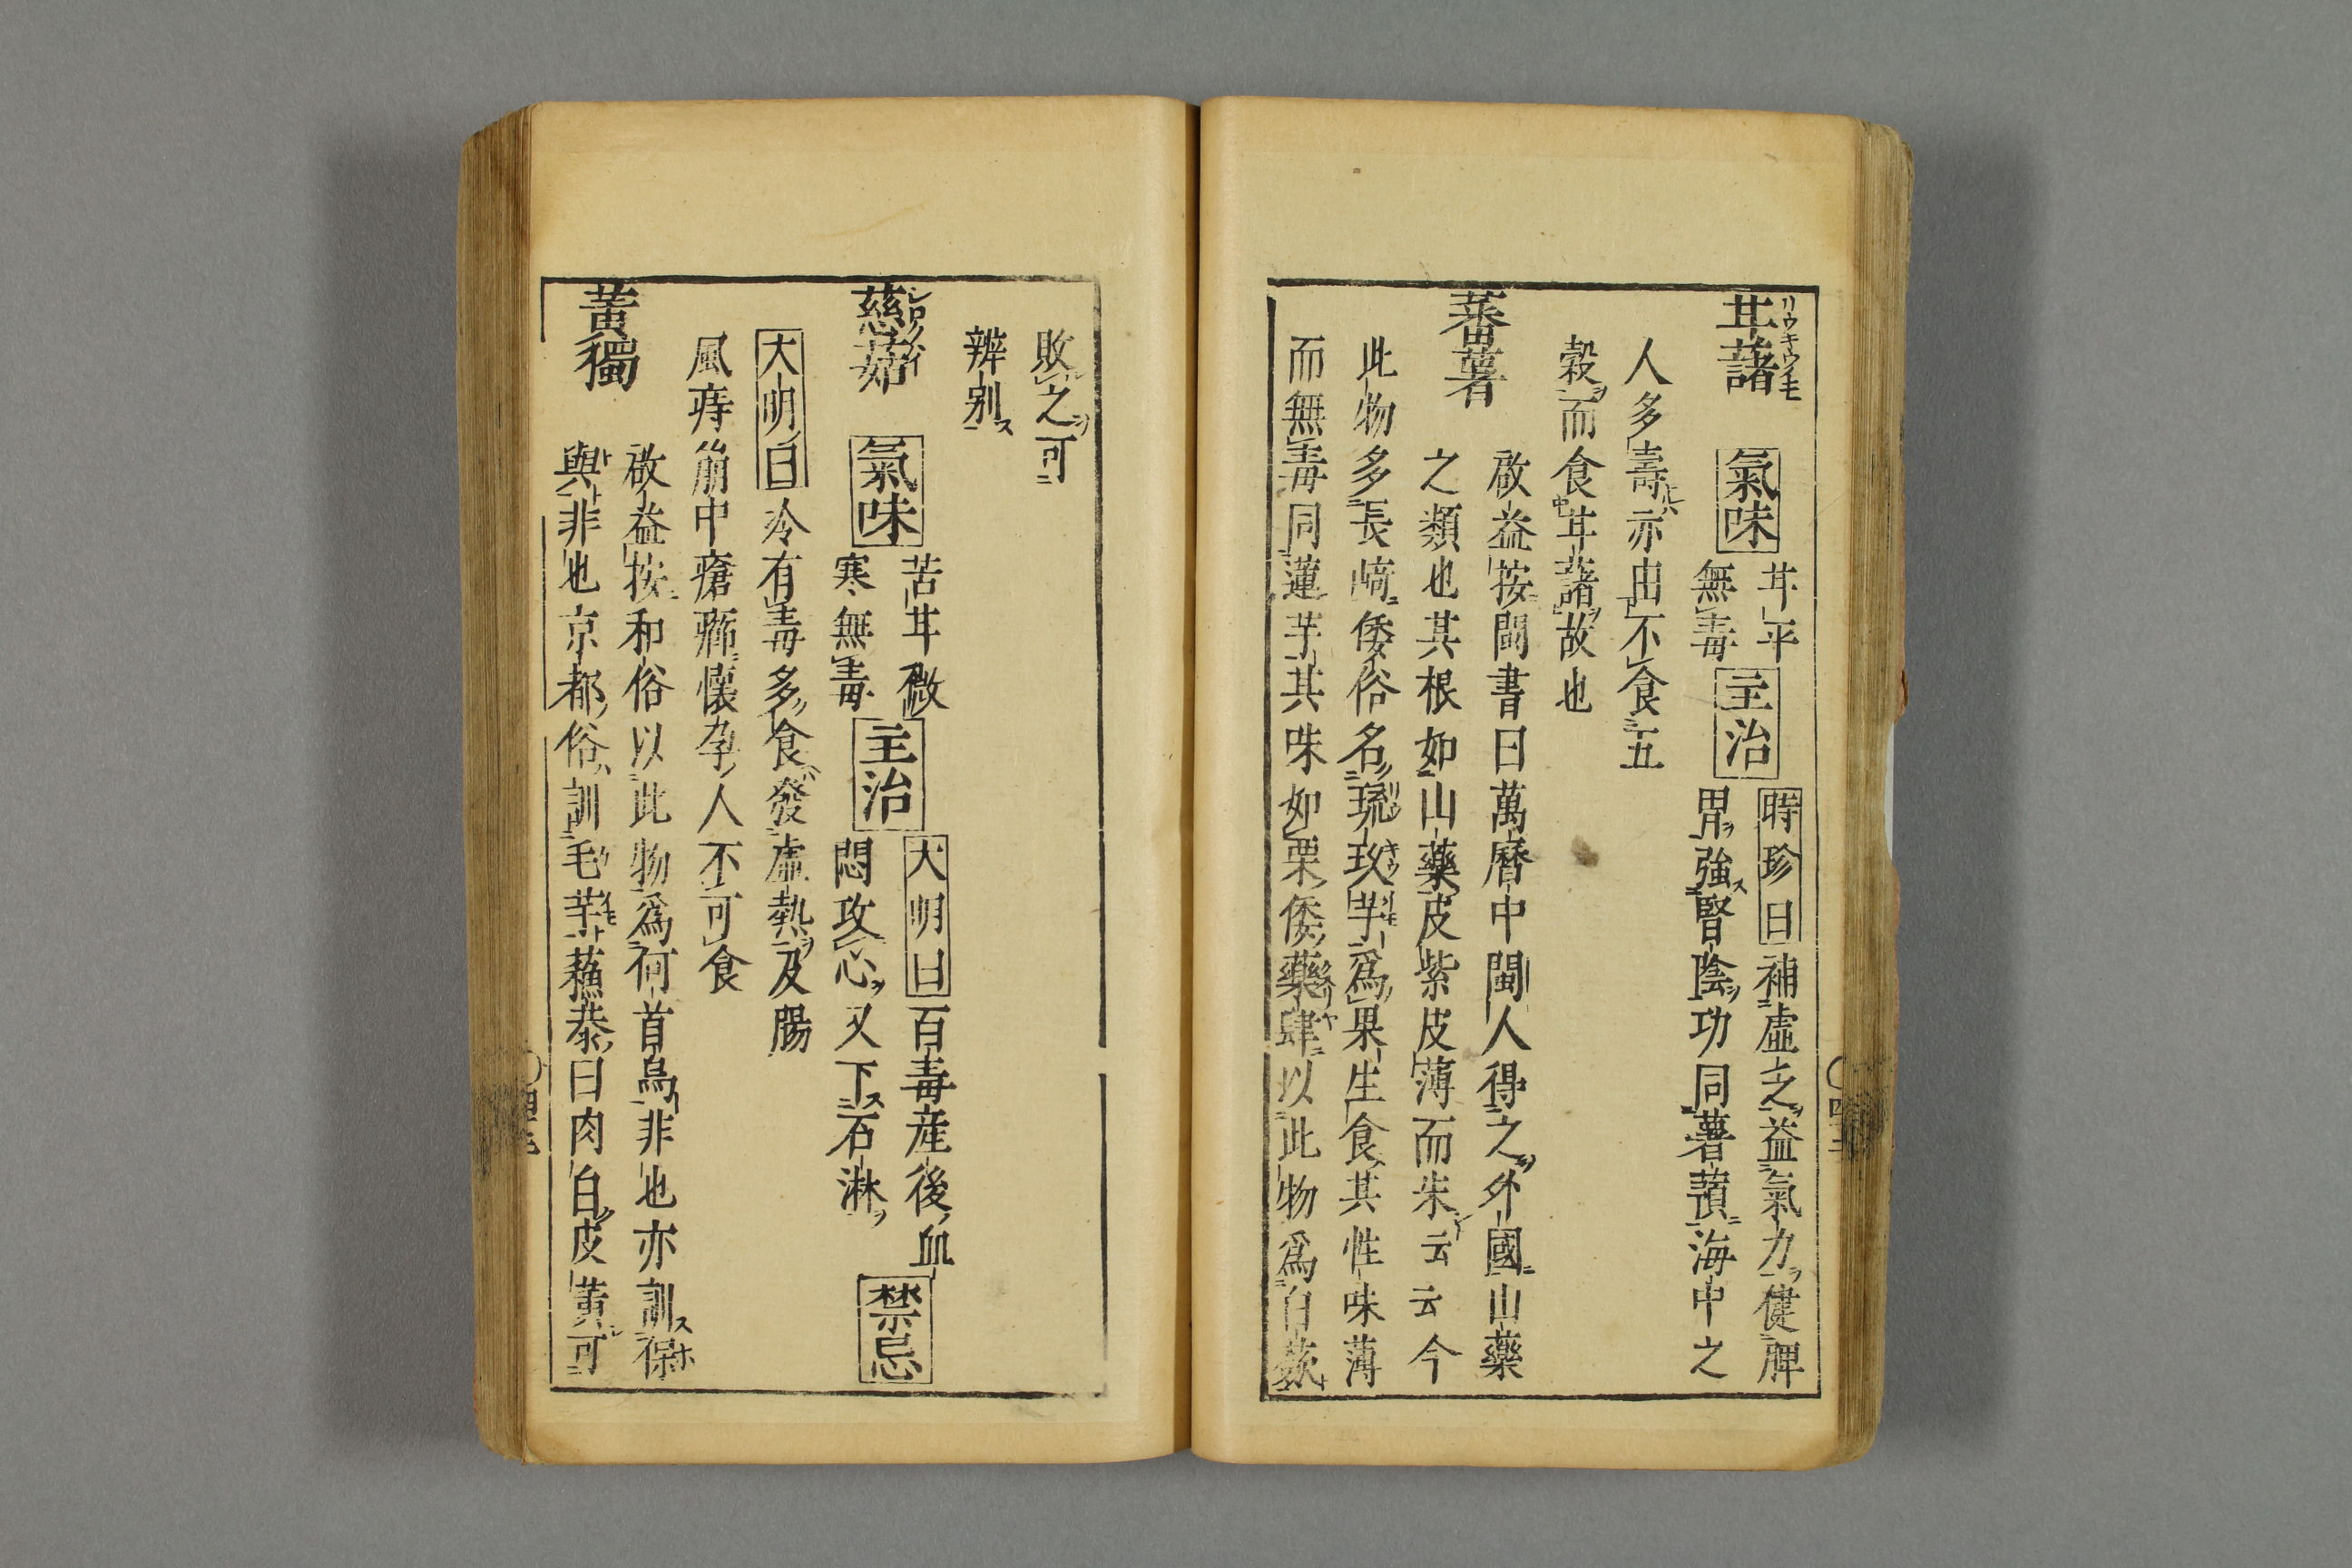 甘藷 リウキウイモ
氣味
甘平
無毒
主治
時珍曰補虛乏益氣力健脾
胃強腎陰功同薯蕷海中之
人多壽亦由不食五
穀而食甘藷故也
蕃薯
啟益按閩書曰萬曆中閩人得之外國山藥
之類也其根如山藥皮紫皮薄而朱云云今
此物多長崎倭俗名琉玖芋爲果生食其性味薄
而無毒同蓮芋其味如栗倭藥肆以此物爲白蘞
敗之可
辨別
慈菇 シロクワイ
氣味
苦甘微
寒無毒
主治
大明曰百毒産後血
悶攻心又下石淋
禁忌
大明曰冷有毒多食發虛熱及腸
風痔崩中瘡癤懷孕人不可食
黃獨
啟益按和俗以此物爲何首烏非也亦訓保
與非也京都俗訓毛芋蘓恭曰肉白皮黃可